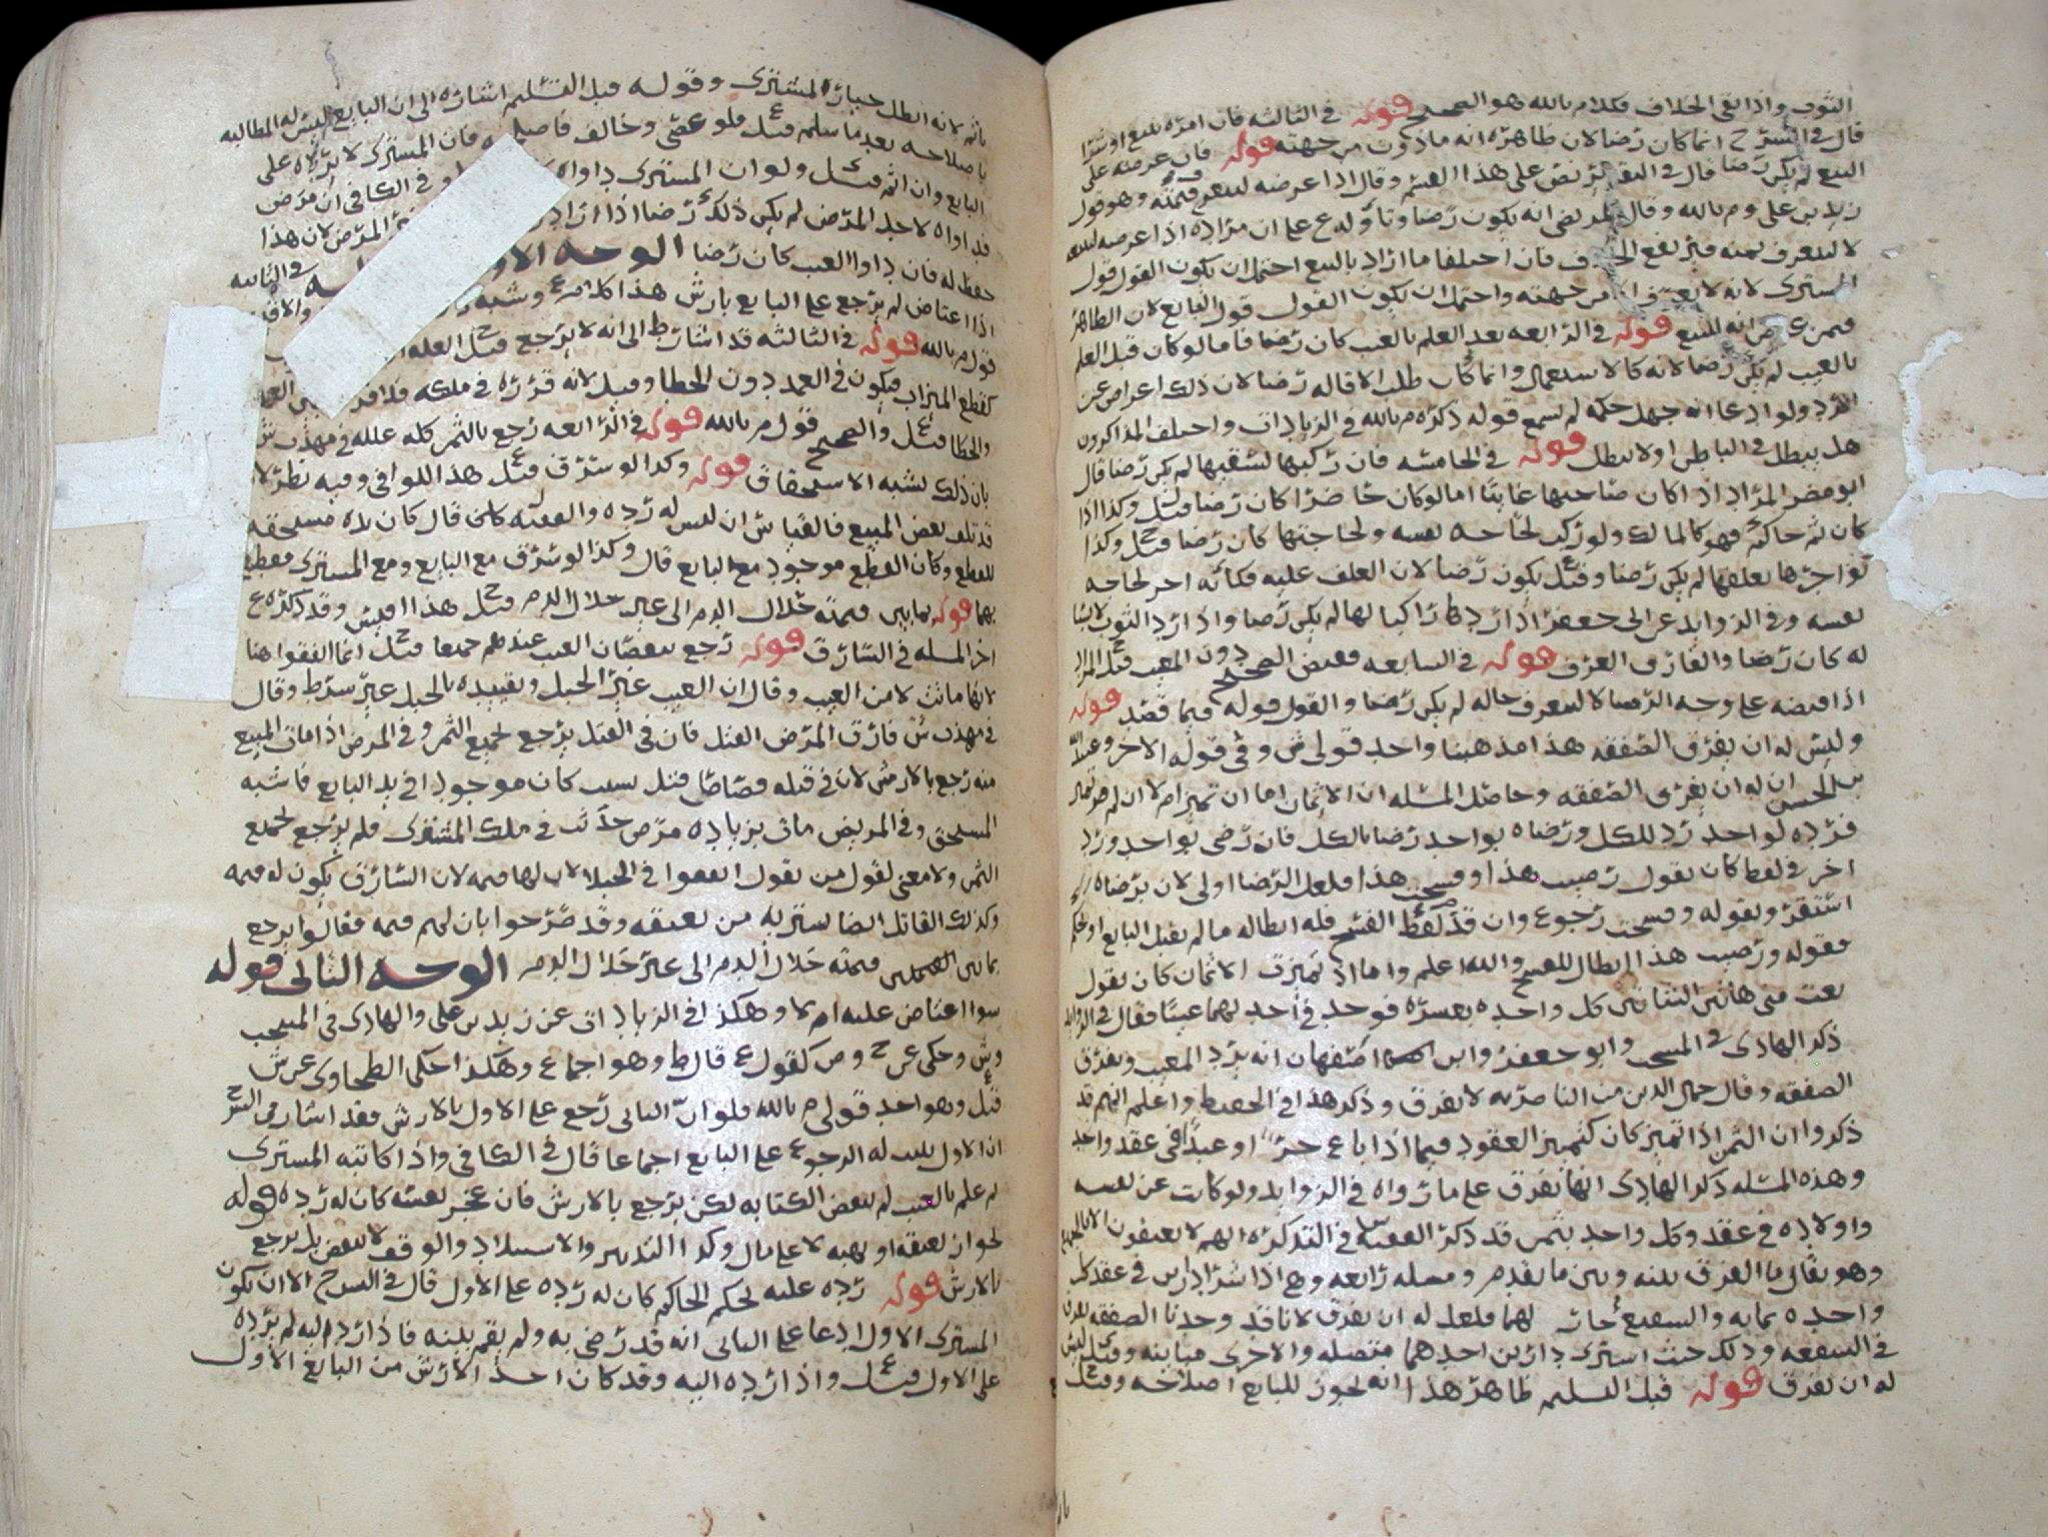 الثوب واذا بقي الخلاف فكلام م بالله هو الصحيح قوله في الثالثه فان امره ببيع او شرا
قال في الشرح انما كان رضا لان ظاهره انه ماذون من جهته قوله فان عرضه على
البيع لم يكن رضا قال في نص على هذا القسم وقال اذا عرضه ليعرف قيمته وهو قول
زيد بن علي و م بالله وقال المرتضى انه يكون رضا وتاوله ع على ان مراده اذا عرضه للبيع
لا ليعرف ثمنه فيرتفع الخلاف فان اختلفا ما اراد بالبيع احتمل ان يكون القول قول
المشتري لانه لا يعرف الا من جهته واحتمل ان يكون القول قول البايع لان الظاهر
فيمن عرض انه للبيع قوله في الرابعه بعد العلم بالعيب كان رضا فاما لو كان قبل العلم
بالعيب لم يكن رضا لانه كالاستعمال وانما كان طلب الاقاله رضا لان ذلك اعراض عن
الرد ولو ادعا انه جهل حكمه لم يسمع قوله ذكره م بالله في الزيادات واختلف المذاكرون
هل يبطل في الباطن او لا يبطل قوله في الخامسه فان ركبها لسقيها لم يكن رضا قال
ابو مضر المراد اذا كان صاحبها غايبا اما لو كان حاضرا كان رضا قيل وكذا اذا
كان ثم حاكم فهو كالمالك ولو ركب لحاجه نفسه ولحاجتها كان رضا قيل وكذا
لو اجرها بعلفها لم يكن رضا وقيل يكون رضا لان العلف عليه فكانه اجر لحاجه
نفسه وفي الزوايد عن ابي جعفر اذا رد راكبا لها لم يكن رضا واذا رد الثوب لابسا
له كان رضا والفارق العرف قوله في السابعه فقبض الصحيح دون المعيب قيل المراد
اذا قبضه على وجه الرضا لا ليعرف حاله لم يكن رضا والقول قوله فيما قصد قوله
وليس له ان يفرق الصفقه هذا مذهبنا واحد قولي ش وفي قوله الاخر وعبيدالله
بن الحسن ان له ان يفرق الصفقه وحاصل المسله ان الاثمان اما ان تميز ام لا ان لم تميز
فرده لواحد رد للكل ورضاه بواحد رضا بالكل فان رضي بواحد ورد
اخر في لفظ كان يقول رضيت هذا وفسخت هذا فلعل الرضا اولى لان برضاه
استقر وبقوله وفسخت رجوع وان قدم لفظ الفسخ فله ابطاله ما لم يقبل البايع او يحكم
فقوله ورضيت هذا ابطال للفسخ والله اعلم واما اذا تميزت الاثمان كان يقول
بعت مني هاتين الشاتين كل واحده بعشره فوجد في احدهما عيبا فقال في الزوايد
ذكر الهادي في المنتخب وابو جعفر وابن اصفهان انه يرد المعيب ويفرق
الصفقه وقال جمال الدين من الناصريه لا يفرق وذكر هذا في الحفيظ واعلم انهم قد
ذكروا ان الثمن اذا تميز كان كتميز العقود فيما اذا باع حرا او عبدا في عقد واحد
وهذه المسله ذكر الهادي انها تفرق على ما رواه في الزوايد ولو كاتب عن نفسه
واولاده في عقد وكل واحد بثمن قد ذكر الفقيه س في التذكره انهم لا يعتقون الا بالجميع
وهو يقال ما الفرق بينه وبين ما تقدم ومسله رابعه وهي اذا شرا دارين في عقد كل
واحده بمايه والشفيع جار لهما فلعل له ان يفرق لانا قد وجدنا الصفقه تفرق
في الشفعه وذلك حيث اشترى دارين احدهما متصله والاخرى مباينه وقيل ليس
له ان يفرق قوله قبل التسليم ظاهر هذا انه يجوز للبايع اصلاحه وقيل
ياثم لانه ابطل خيار المشتري وقوله قبل التسليم اشاره الى ان البايع ليس له المطالبه
باصلاحه بعد ما سلمه قيل فلو عصى وخالف فاصلحه فان المشتري لا يرده على
البايع وان اثم قيل ولو ان المشتري داواه وفي الكافي ان مرض
فداواه لاجل المرض لم يكن ذلك رضا اذا اراد المرض لان هذا
حفظ له فان داوا العيب كان رضا الوجه الاول في الثانيه
اذا اعتاض لم يرجع على البايع بارش هذا كلام ع وشبه
قول م بالله قوله في الثالثه قد اشار ط الى انه لا يرجع قيل العله
كقطع الميزاب فيكون في العمد دون الخطا وقيل لانه قرره في ملكه فلا فرق بين العمد
والخطا قيل والصحيح قول م بالله قوله في الرابعه رجع بالثمن كله علله في مهذب ش
بان ذلك يشبه الاستحقاق قوله وكذا لو سرق قيل هذا للوافي وفيه نظر لانه
قد تلف بعض المبيع فالقياس ان ليس له رده والفقيه قال كان يده مستحقه
للقطع وكان القطع موجود مع البايع قال وكذا لو سرق مع البايع ومع المشتري فقطع
بهما قوله بما بين قيمته حلال الدم الى غير حلال الدم قيل هذا اقيس وقد ذكره ع
اخر المسله في السارق قوله رجع بنقصان العيب عندهم جميعا قيل انما اتفقوا هنا
لانها ماتت لا من العيب وقال ان العيب غير الحبل وتقييده بالحبل غير شرط وقال
في مهذب ش فارق المرض القتل فان في القتل يرجع بجميع الثمن وفي المرض اذا مات المبيع
منه رجع بالارش لان في قتله قصاصا قتل بسبب كان موجودا في يد البايع فاشبه
المستحق وفي المريض مات بزياده مرض حدثت في ملك المشتري فلم يرجع بجميع
الثمن ولا معنى لقول من يقول اتفقوا في الحبلا لان لها قيمه لان السارق يكون له قيمه
وكذلك القاتل ايضا يشتريه من يعتقه وقد صرحوا بان لهم قيمه فقالوا يرجع
بما بين القيمتين قيمته حلال الدم الى غير حلال الدم الوجه الثاني قوله
سوا اعتاض عليه ام لا وهكذا في الزيادات عن زيد بن علي والهادي في المنتخب
وش وحكى عن ح وص كقول ع قال ط وهو اجماع وهكذا حكى الطحاوي عن ش
قيل وهو احد قولي م بالله فلو ان الثاني رجع على الاول بالارش فقد اشار في الشرح
ان الاول يثبت له الرجوع على البايع اجماعا قال في الكافي واذا كاتبه المشتري
ثم علم بالعيب لم تنقض الكتابه لكن يرجع بالارش فان عجز نفسه كان له رده قوله
نحو ان يعتقه او يهبه لا على مال وكذا التدبير والاستيلاد والوقف لا ينقض بل يرجع
بالارش قوله رده عليه بحكم الحاكم كان له رده على الاول قال في الشرح الا ان يكون
المشتري الاول ادعا على الثاني انه قد رضي به ولم يقم بينه فاذا رد اليه لم يرده
على الاول قيل واذا رده اليه وقد كان اخذ الارش من البايع الاول